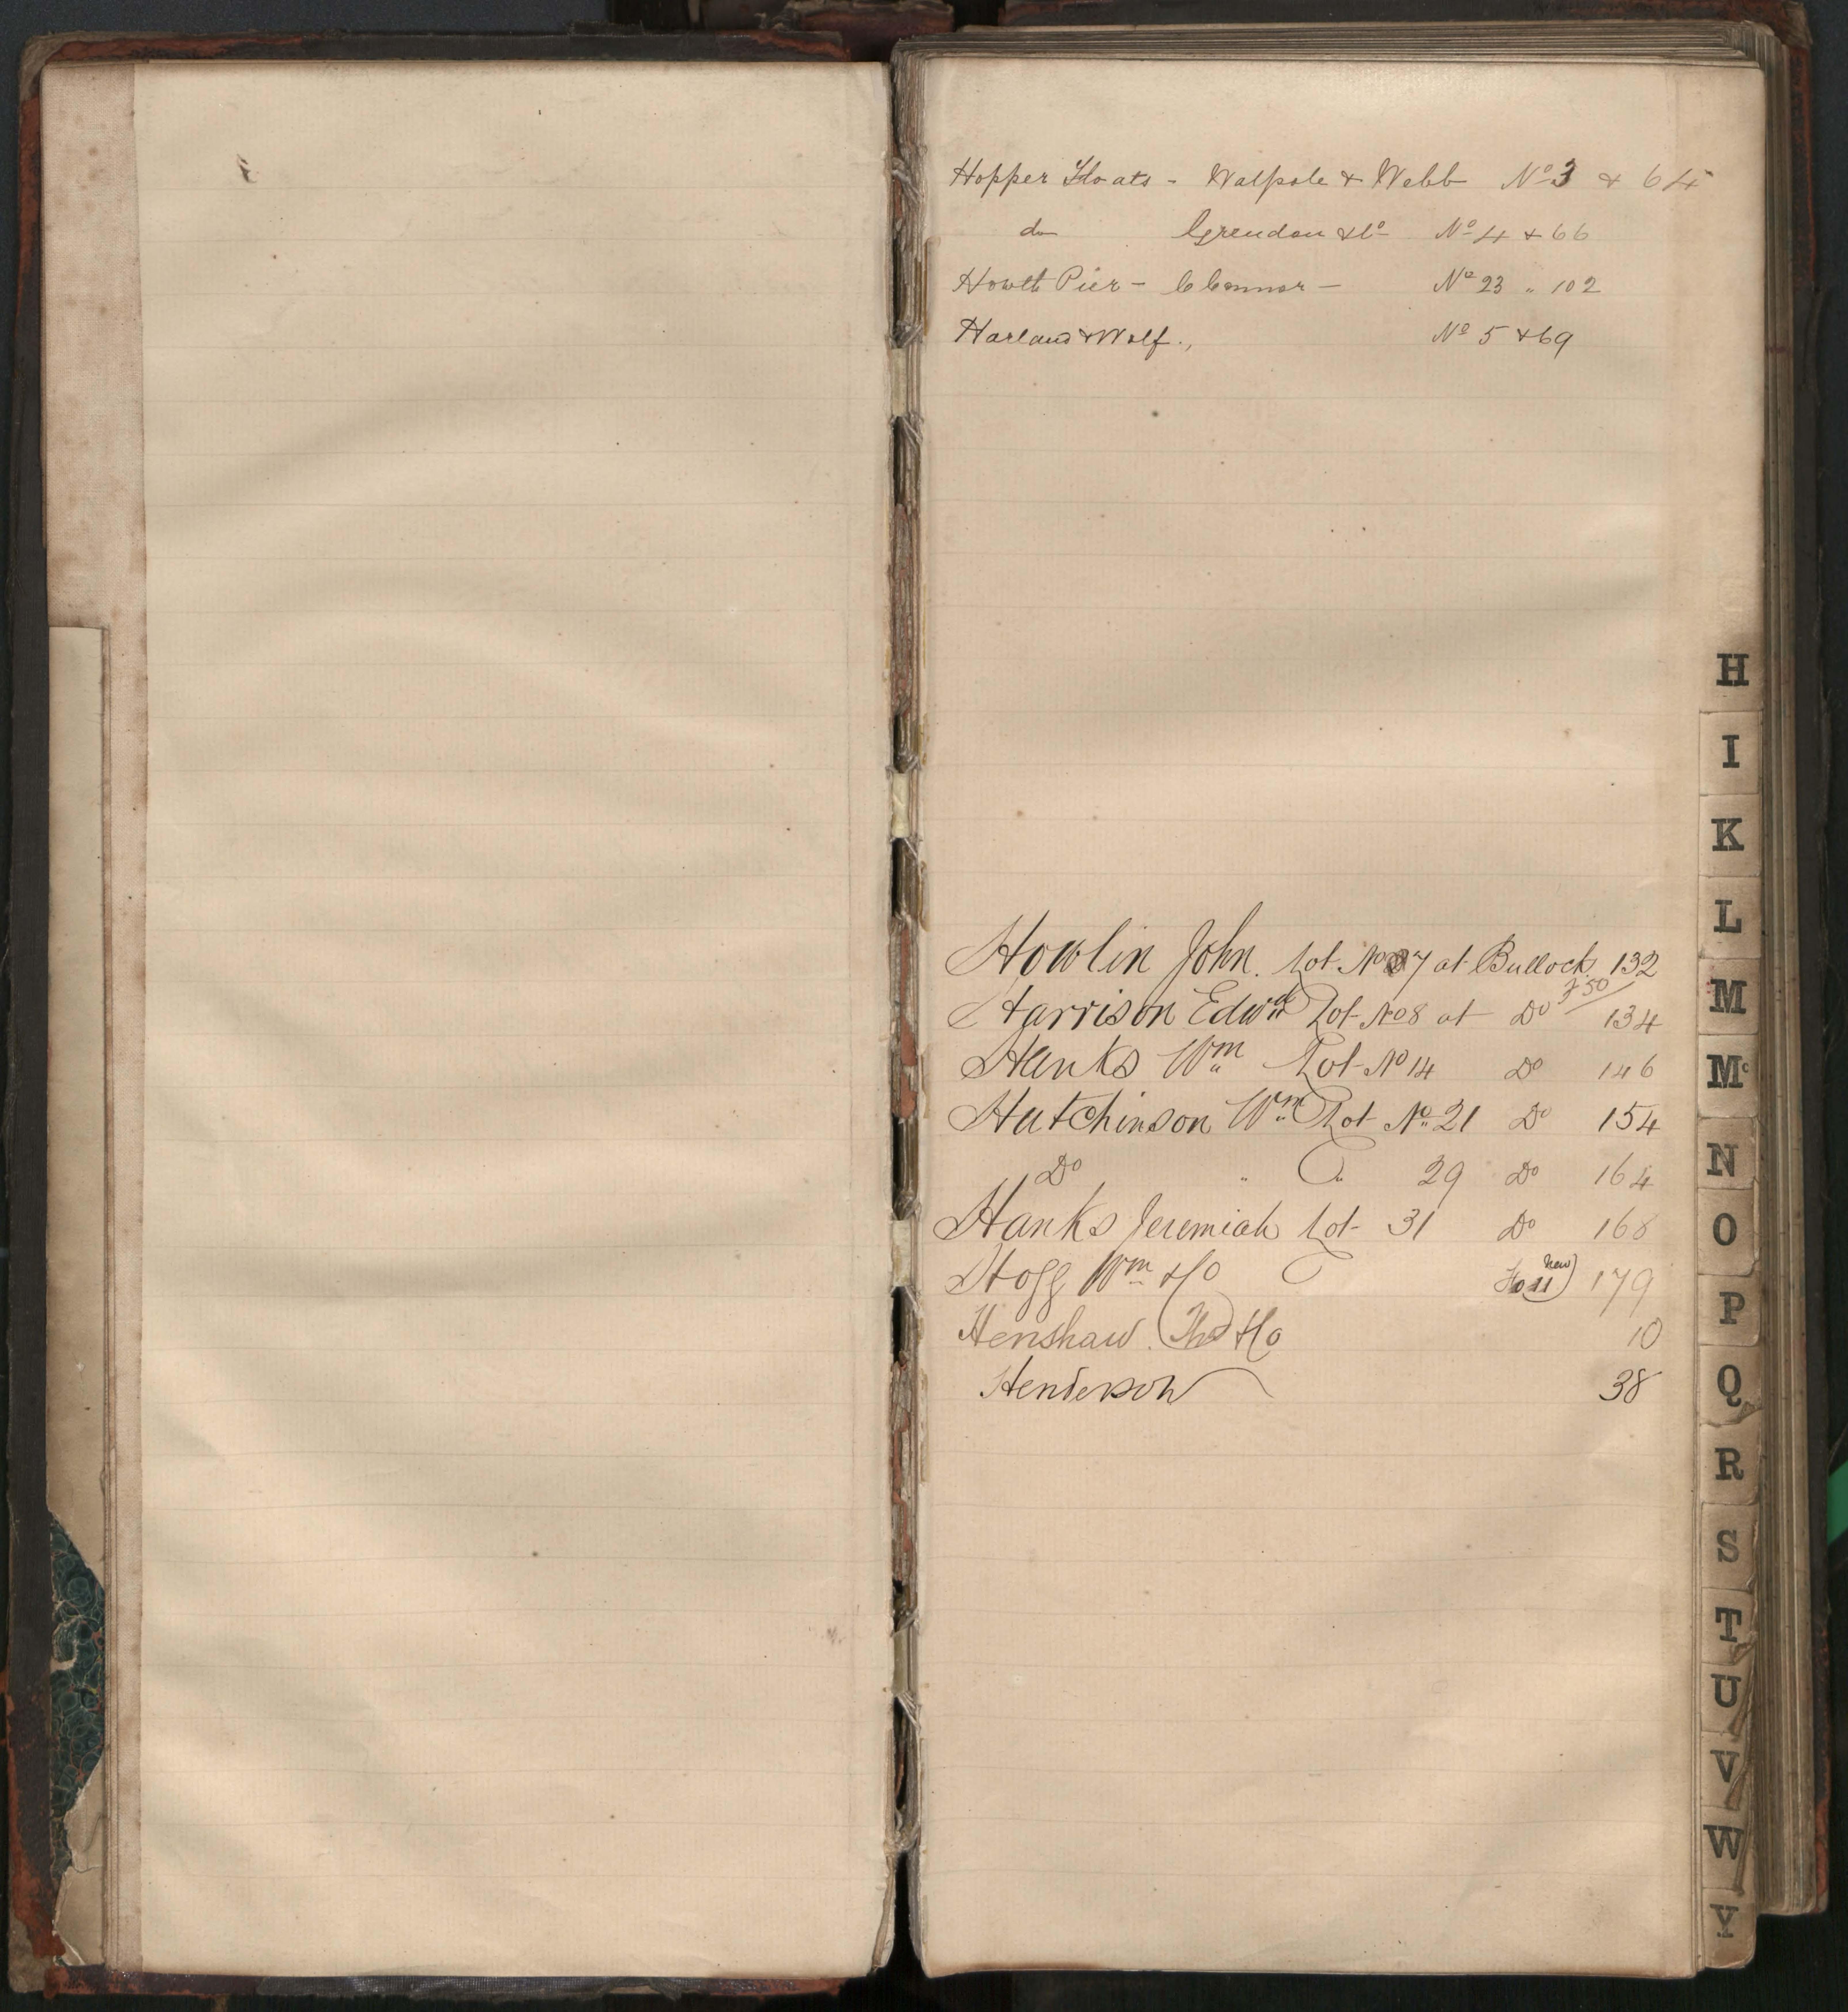 Hopper Floats - Walpole & Webb Nº 3 & 64
do Grendon & Cº Nº 4 & 66
Howth Pier - O Connor - Nº 23 " 102
Harland & Wolf., Nº 5 & 69
Howlin John. Lot Nº 7 at Bullock 132
Harrison Edwd Lot Nº 8 at Dº 134
Hanks Wm Lot Nº 14 Dº 146
Hutchinson Wm Lot Nº 21 Dº 154
Dº " " 29 Dº 164
Hanks Jeremiah Lot 31 Dº 168
Hogg Wm & Co new 179
Henshaw. Thos & Co 10
Henderson 38
H
I
K
L
M
Mc
N
O
P
Q
R
S
T
U
V
W
Y